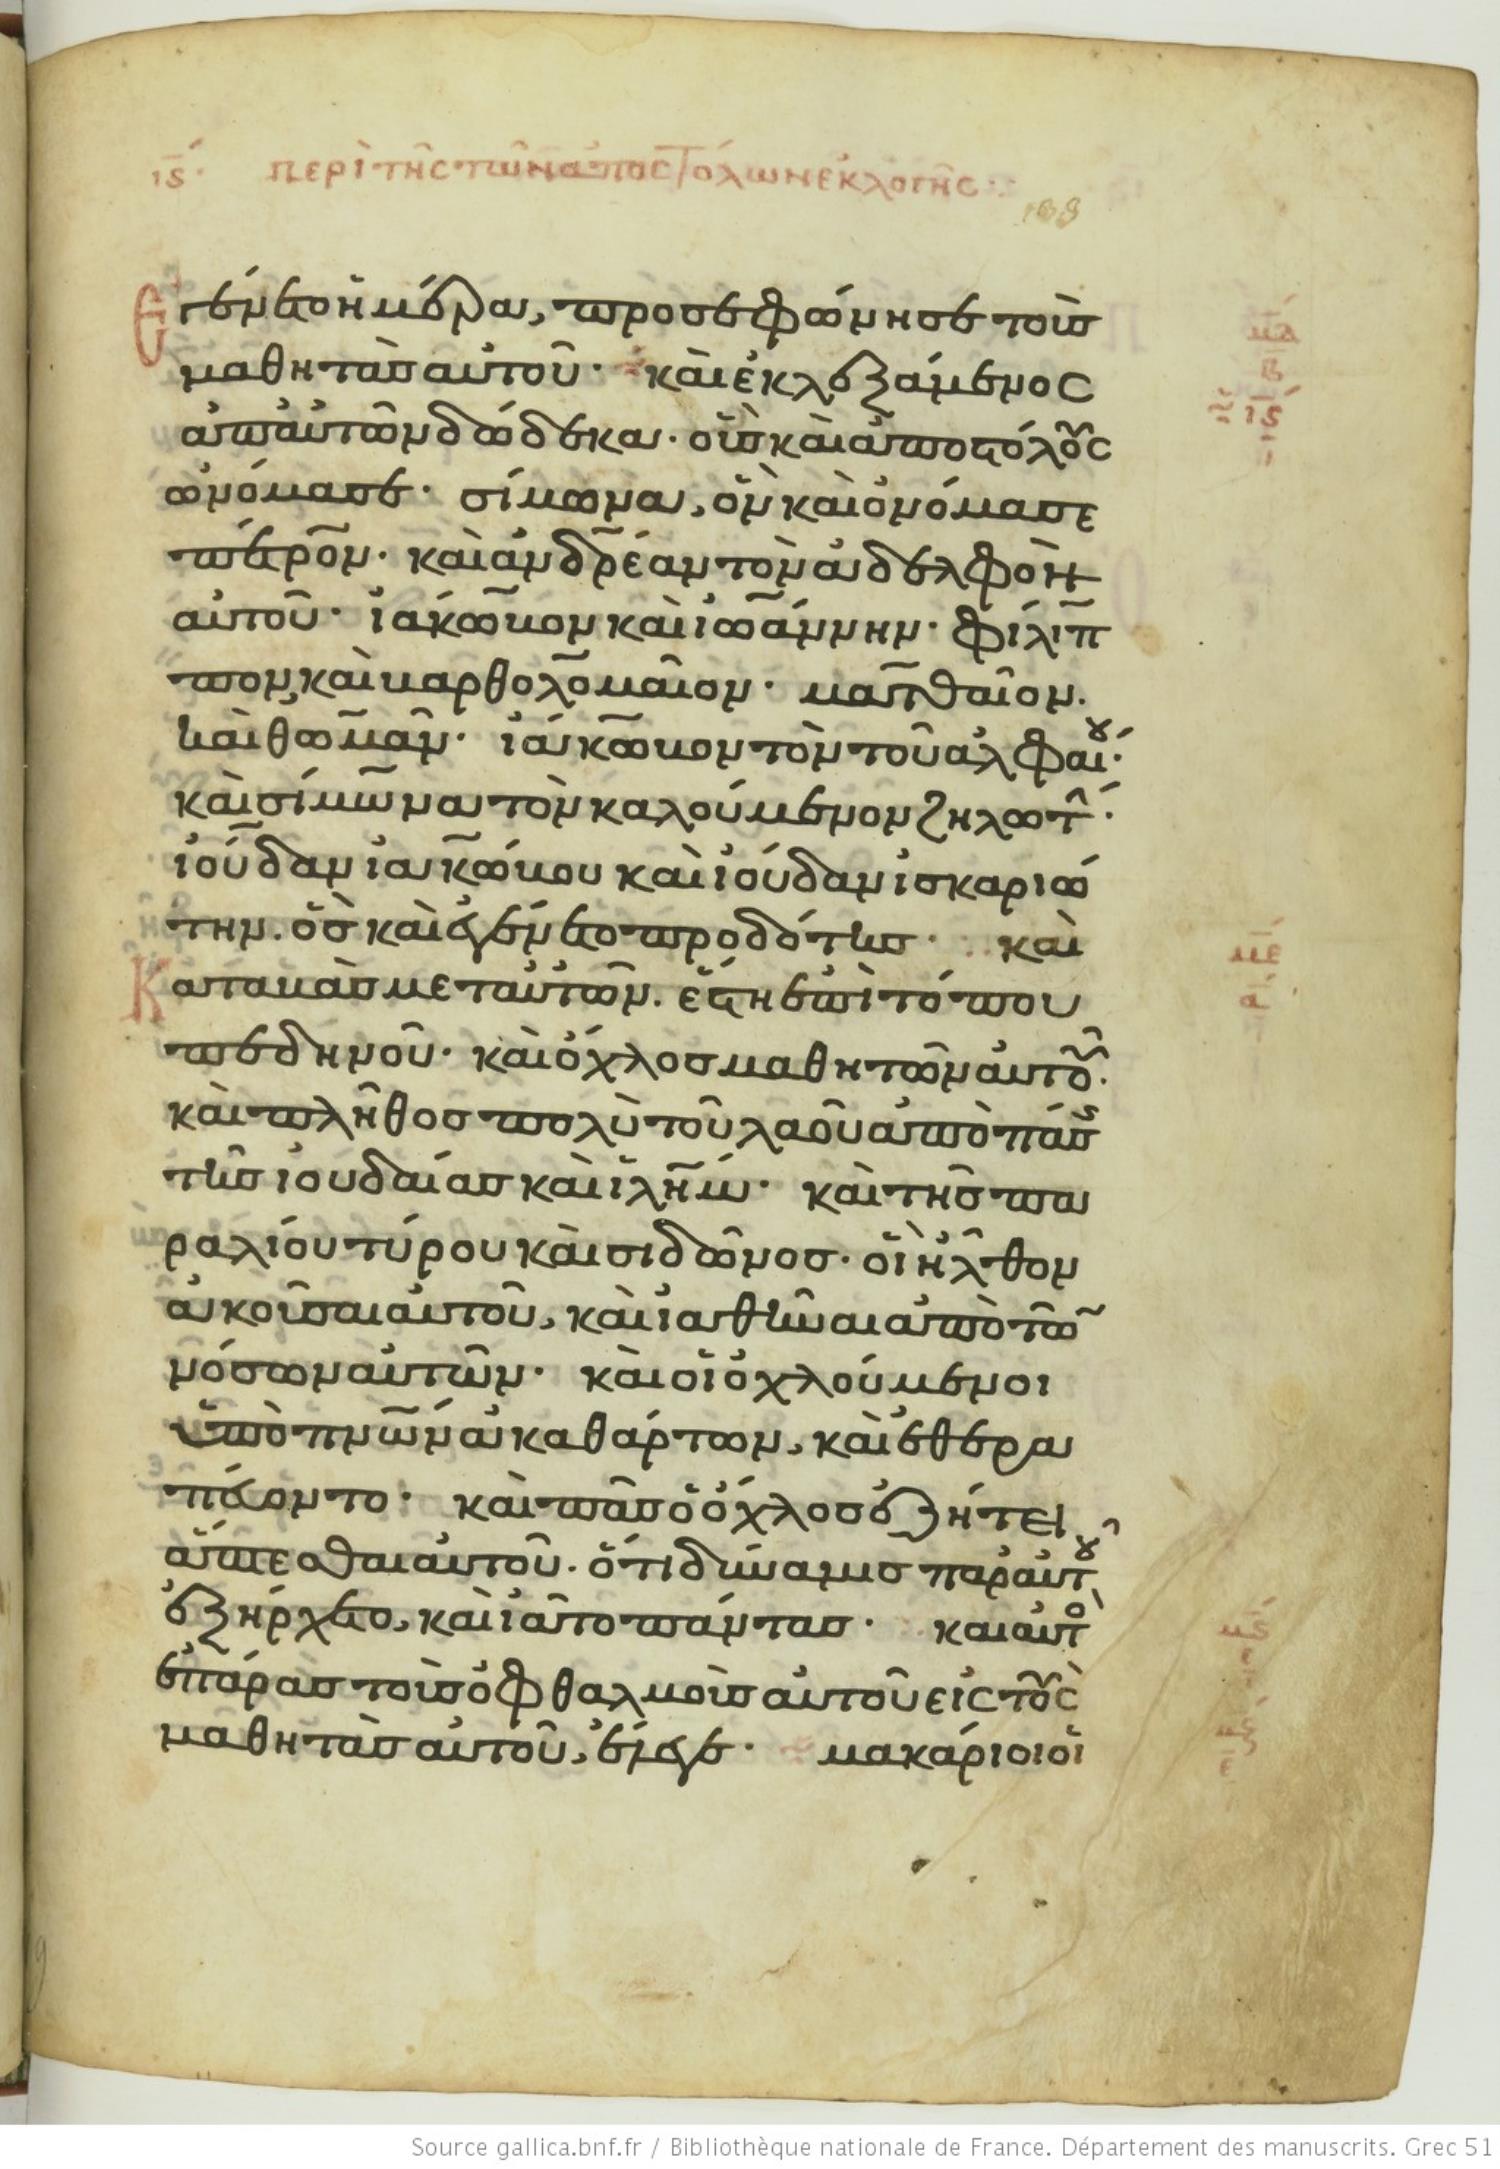 ιϛ περὶ τῆς τῶν ἀποστόλων ἐκλογῆς
Εγένετο ἡμέρα, προσεφώνησε τοὺς
μαθητὰς αὐτοῦ· καὶ ἐκλεξάμενος
ἀπ' αὐτῶν δώδεκα· οὓς καὶ ἀποστόλους
ὠνόμασε· σίμωνα, ὃν καὶ ὀνόμασε
πέτρον· καὶ ἀνδρέαν τὸν ἀδελφὸν
αὐτοῦ· ἰάκωβον καὶ ἰωάννην· φίλιπ
πον, καὶ βαρθολομαῖον· ματθαῖον.
καὶ θωμᾶν· ἰάκωβον τὸν τοῦ ἀλφαίου·
καὶ σίμωνα τὸν καλούμενον ζηλωτ·
ἰούδαν ἰακώβου καὶ ἰούδαν ἰσκαριώ
την. ὃς καὶ ἐγένετο προδότης· καὶ
Καταβὰς μετ' αὐτῶν. ἔστη ἐπὶ τόπου
πεδηνοῦ· καὶ ὄχλος μαθητῶν αὐτοῦ.
καὶ πλῆθος πολὺ τοῦ λαοῦ ἀπὸ πάσ
τῆς ἰουδαίας καὶ ἰλημ· καὶ τῆς πα
ραλίου τύρου καὶ σιδῶνος· οἳ ἦλθον
ἀκοῦσαι αὐτοῦ, καὶ ἰαθῆναι ἀπὸ τῶ
νόσων αὐτῶν· καὶ οἱ ὀχλούμενοι
ὑπὸ πνων ἀκαθάρτων, καὶ ἐθερα
πεύοντο· καὶ πᾶς ὁ ὄχλος ἐζήτει
ἅπτεσθαι αὐτοῦ. ὅτι δύναμις παρ' αὐτοῦ
ἐξήρχετο, καὶ ἰᾶτο πάντας· και αὐτὸ
ἐπάρας τοὺς ὀφθαλμοὺς αὐτοῦ εἰς τοὺς
μαθητὰς αὐτοῦ, ἔλεγε· μακάριοι οἱ
Source gallica.bnf.fr / Bibliothèque nationale de France. Département des manuscrits. Grec 51